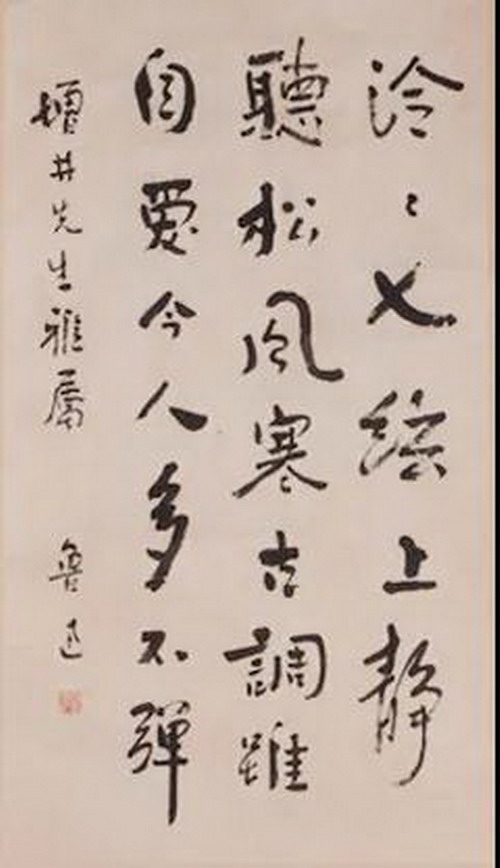 泠〻七絃上静
聽松風寒古調雖
自愛今人多不彈
增井先生雅屬
魯迅